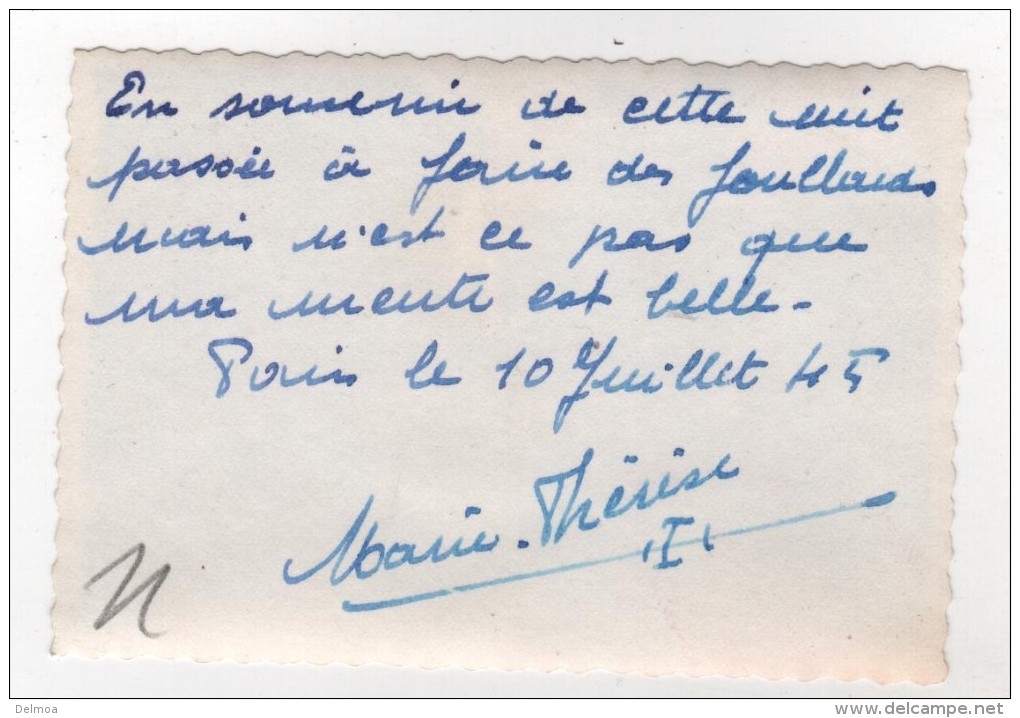 En souvenir de cette nuit
passée à faire des
mais n'est ce pas que
ma est belle -
Paris le 10 Juillet 45
Marie-Thérèse
I
Delmoa
www.delcampe.net